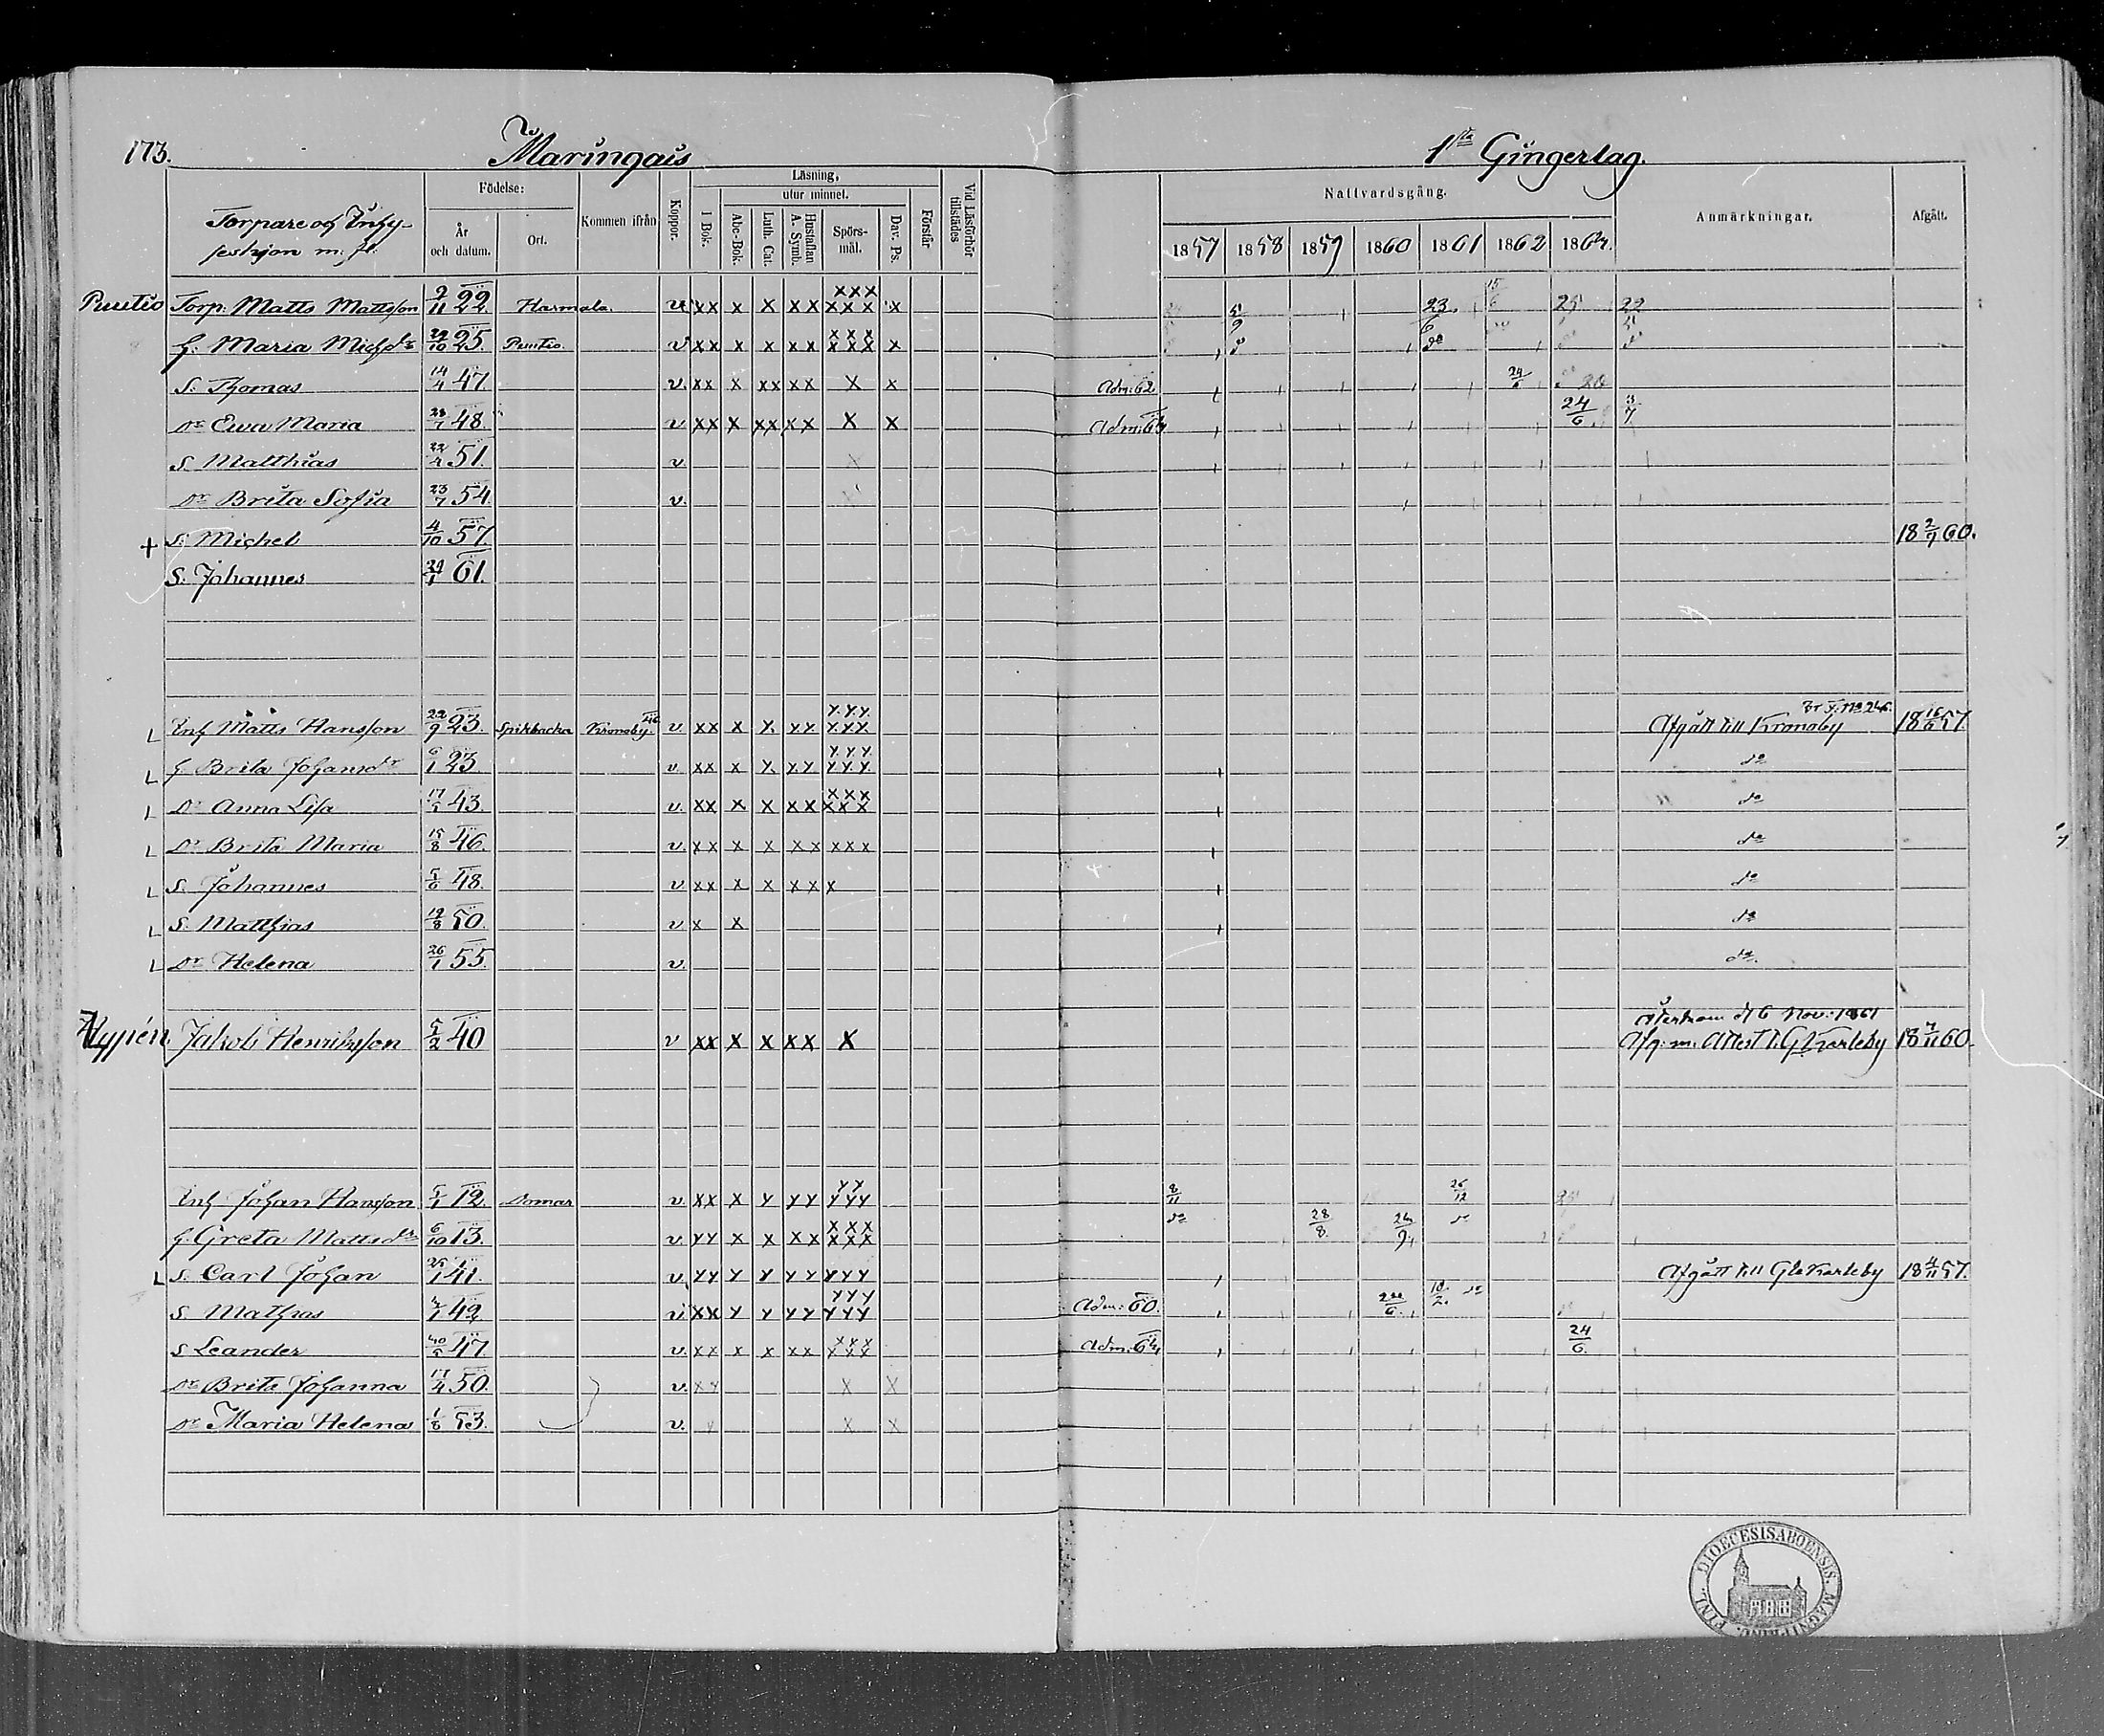 173.
Maringais
1sta Gingerlag.
Torpare och Inhy-
seshjon m. fl.
Födelse:
År
och datum.
Ort.
Kommen ifrån
Koppor.
Läsning,
utur minnet.
I Bok.
Abc-Bok.
Luth. Cat.
Hustaflan
A. Symb.
Spörs-
mål.
Dav. Ps.
Förstår
Vid Läsförhör
tillstädes
Nattvardsgång.
1857 1858 1859 1860 1861 1862 1864.
Anmärkningar.
Afgått.
Puutio Torp. Matts Mattsson 2/11 22 Harmala. v xx x x xx xxx xxx x 5/9 23/6 15/6 25 22/5
H. Maria Michsdr 29/10 25. Puutio v xx x x xx xxx xxx x do do
S. Thomas 14/4 47 v. xx x xx xx x x Adm: 62 24/6
Dr Ewa Maria 23/7 48 v xx x xx xx x x Adm: 64 24/6 3/7
S. Matthias 22/2 51. v. x
Dr Brita Sofia 23/7 54. v.
+ S. Michel 4/10 57. 18 2/7 60.
S. Johannes 29/1 61.
L Inh Matts Hansson 22/9 23. Spikbacka Kronoby. 46 v. xx x x xx xxx xxx Br F. No 246. Afgått till Kronoby 18 16/6 57.
L H. Brita Johansdr 6/1 23 v. xx x x xx xxx xxx do
L Dr Anna Lisa 17/1 43. v. xx x x xx xxx xxx do
L Dr Brita Maria 15/8 46. v. xx x x xx xxx do
L S. Johannes 5/6 48. v xx x x xx x do
L S. Matthias 12/8 50. v x x do
L Dr Helena 26/1 55. v. do.
Återkom d 6 Nov. 1861
Nypén Jakob Henriksson 5/2 40 v xx x x xx x Afg. m. Attest t. Gl Karleby 18 7/11 60.
Inh Johan Hansson 5/1 12. Domar v. xx x x xx xx xxx 8/11 26/12
H. Greta Mattsdr 6/10 13. v. xx x x xx xxx xxx do 28/8. 26/9 do
L S. Carl Johan 25/1 41. v. xx x x xx xxx Afgått till Gla Karleby 18 4/11 57.
S. Mathias 42 v. xx x x xx xxx xxx Adm: 60. 10/2. do
S Leander 47 v. xx x x xx xxx xxx Adm: 64 24/6.
Dr Brita Johanna 17/4 50. v. xx x x
Dr Maria Helena 1/8 53. v. x x x
FINL. DIOECESIS ABOENSIS. MAGNI PRINC.